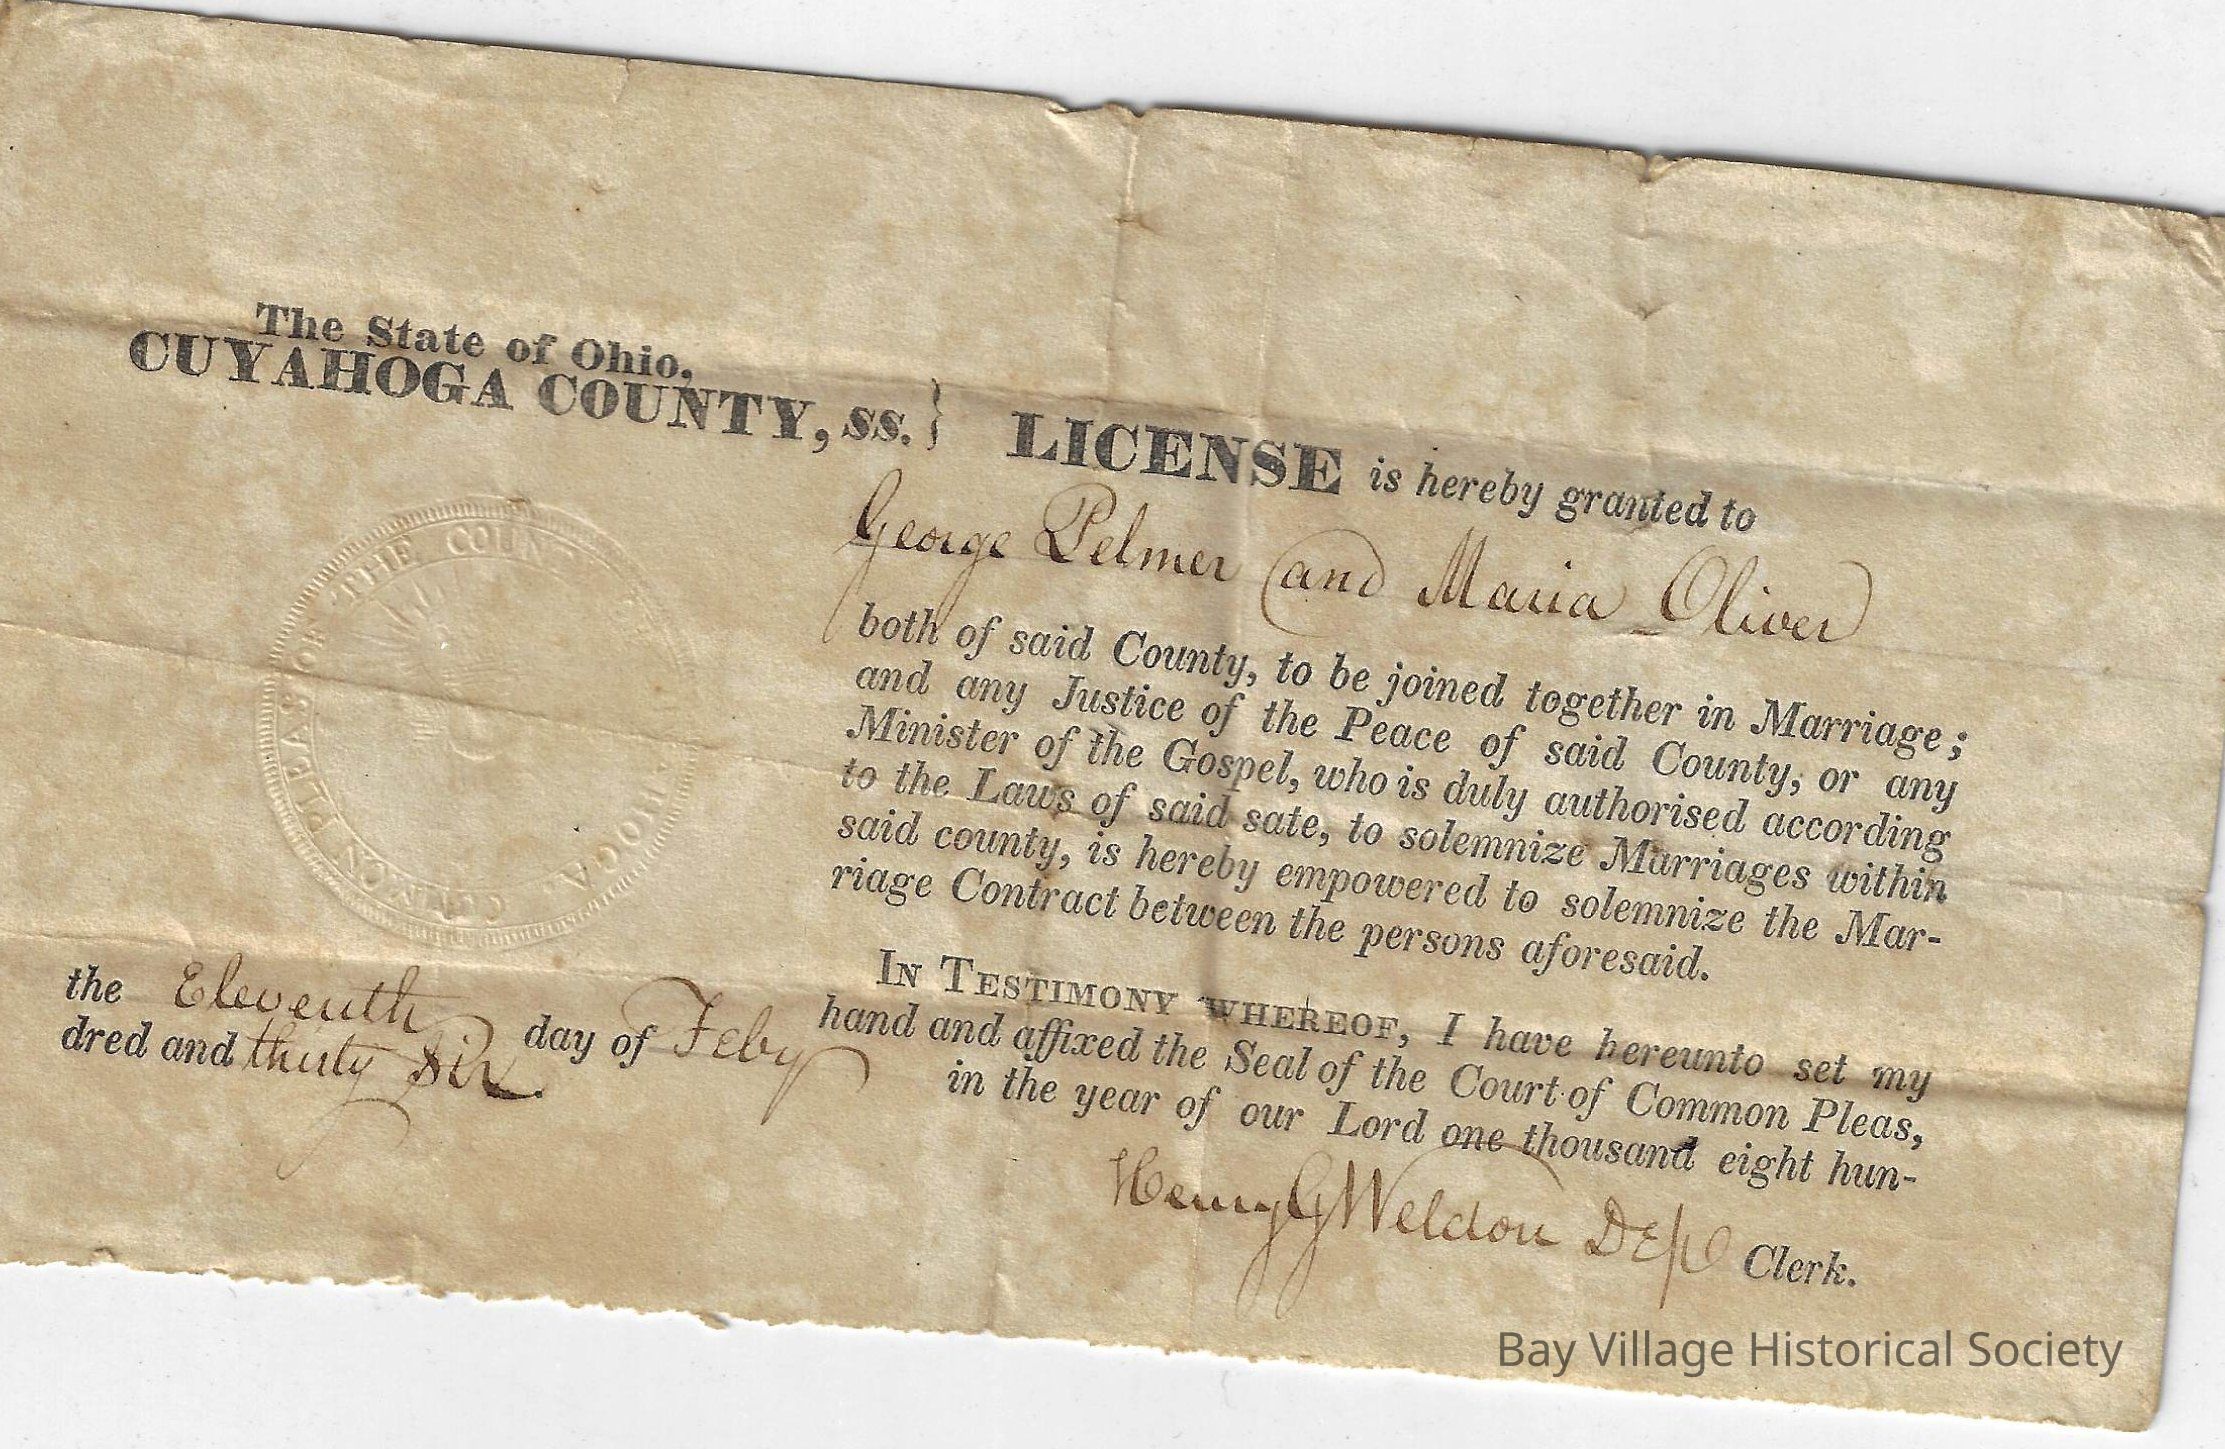 The State of Ohio,
CUYAHOGA COUNTY, ss. } LICENSE is hereby granted to
George Pelmer and Maria Oliver
both of said County, to be joined together in Marriage;
and any Justice of the Peace of said County, or any
Minister of the Gospel, who is duly authorised according
to the Laws of said sate, to solemnize Marriages within
said county, is hereby empowered to solemnize the Mar-
riage Contract between the persons aforesaid.
IN TESTIMONY WHEREOF, I have hereunto set my
hand and affixed the Seal of the Court of Common Pleas,
the Eleventh day of Feby in the year of our Lord one thousand eight hun-
dred and thirty Six.
Henry G Weldon Dep Clerk.
COMMON PLEAS OF THE COUNTY
Bay Village Historical Society